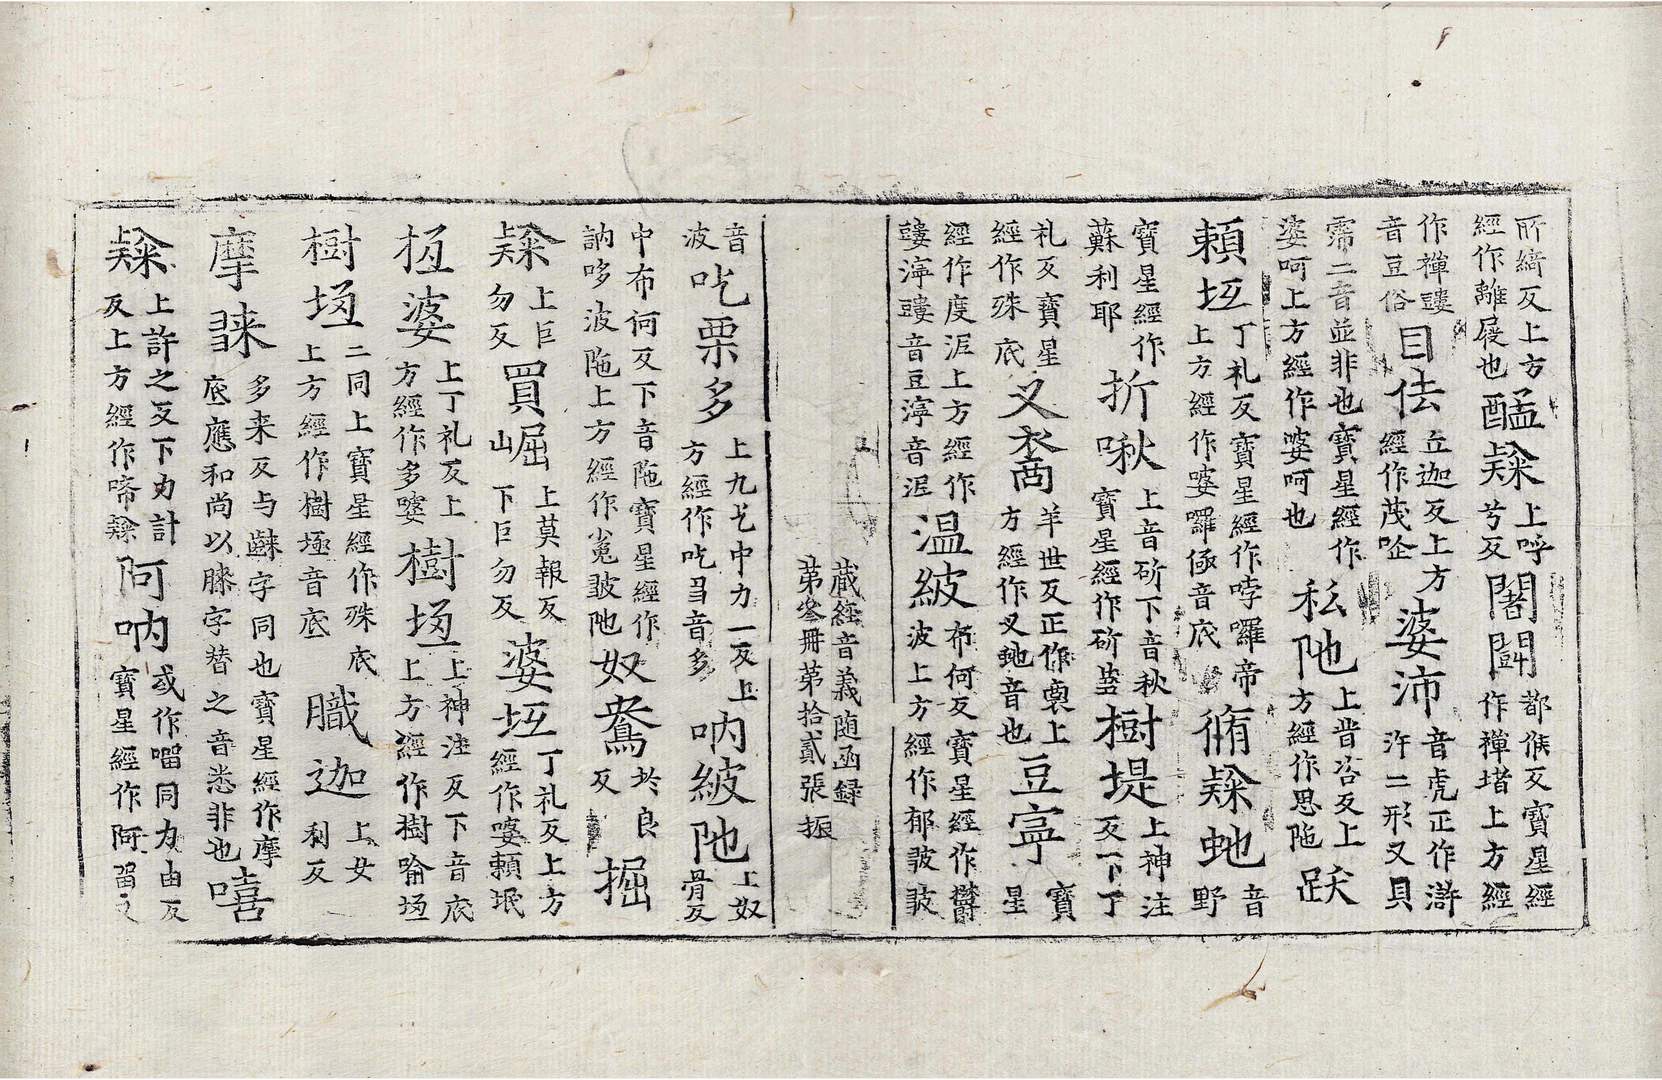 所綺反上方經作離屣也醯𨽻上呼兮反闍閗都侯反寳星經作禪堵上方經
作禪鞻音豆俗目佉丘迦反上方經作茂企婆沛音虎正作滸汻二形又貝
霈二音並非也寳星經作婆呵上方經作婆呵也私陁上晋咨反上方經作思陁跃
頼坘丁礼反寳星經作哱囉帝上方經作婆囉俹音底脩𨽻虵音野
寳星經作蘇利耶折啾上音斫下音秋寳星經作斫蒭樹堤上神注反下丁
礼反寳星經作殊底叉裔羊世反正作裔上方經作叉虵音也豆寧寳星
經作度泥上方經作鞻濘鞻音豆濘音泥温紴布何反寳星經作欝波上方經作郁跛跛
藏經音義随函録
第叄冊第拾貳張 振
音波吃栗多上九乞反中力一反上方經作吃㝵音多呐紴陁上奴骨反
中布何反下音陁寳星經作訥哆波陁上方經作㝹跛陁奴鴦於良反掘
𨽻上巨勿反買崛上莫報反下巨勿反婆坘丁礼反上方經作婆頼坻
柢婆上丁礼反上方經作多婆樹埿上神注反下音底上方經作樹喻埿
樹埿二同上寳星經作殊底上方經作樹埿音底職迦上女利反
摩多来反与字同也寳星經作摩底應和尚以字替之音悉非也嘻
𨽻上許之反下力計反上方經作啼𨽻阿呐或作㗰同力由反寳星經作阿留又